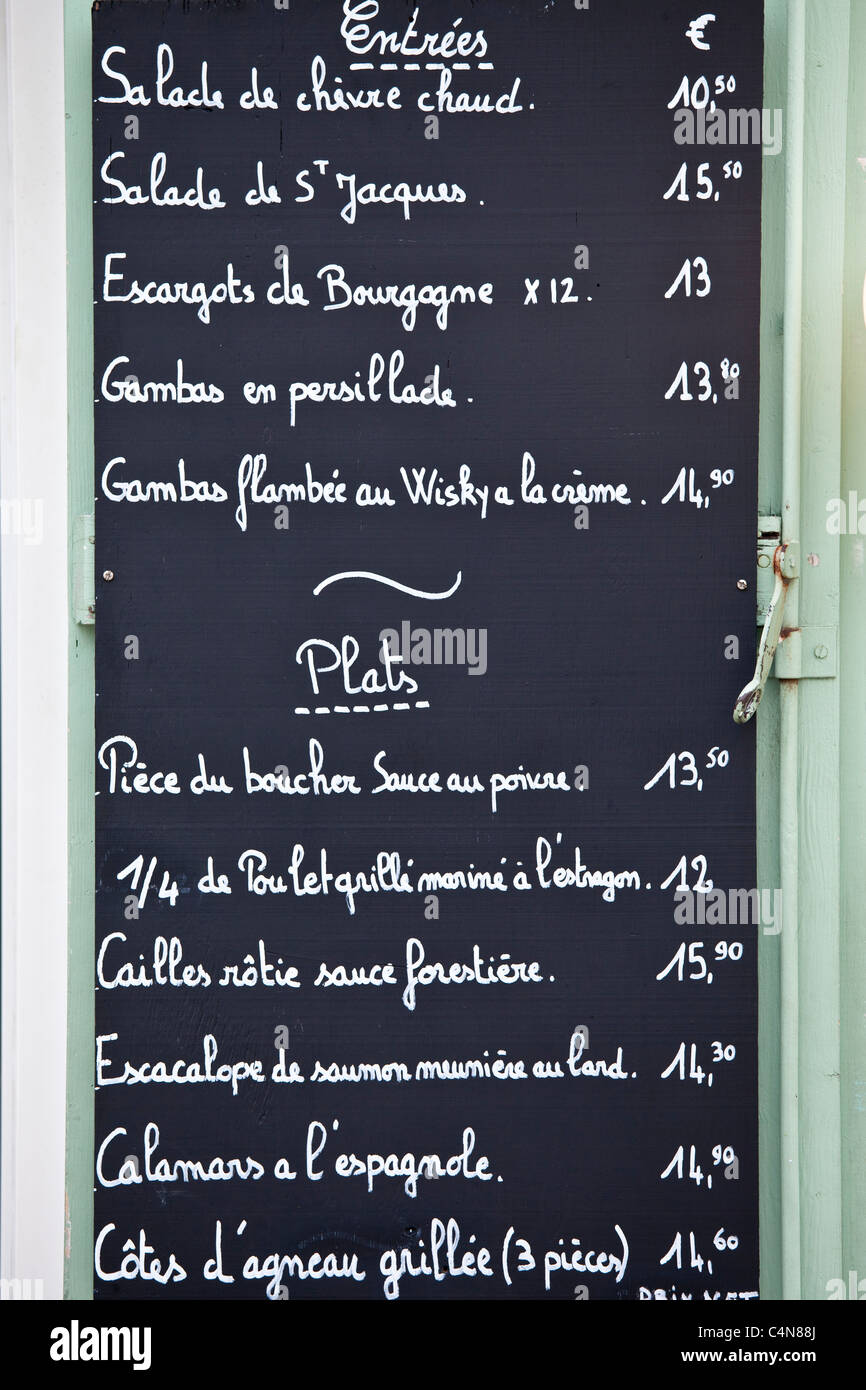 Entrées €
Salade de chèvre chaud. 10,50
Salade de ST Jacques. 15,50
Escargots de Bourgogne x 12. 13
Gambas en persillade. 13,80
Gambas flambée au Wisky a la crème. 14,90
Plats
Pièce du boucher Sauce au poivre. 13,50
1/4 de Poulet grillé mariné à l'éstragon. 12
Cailles rôtie sauce forestière. 15,90
Escacalope de saumon meunière au lard. 14,30
Calamars a l'espagnole. 14,90
Côtes d'agneau grillée (3 pièces) 14,60
PRIX NET
alamy
Image ID: C4N88J
www.alamy.com